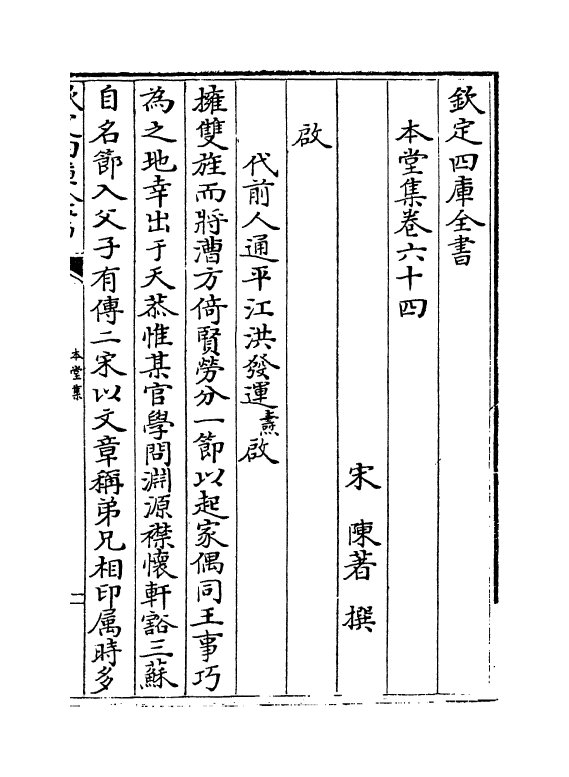 欽定四庫全書
本堂集卷六十四
宋 陳著 撰
啟
代前人通平江洪發運燾啟
擁雙旌而將漕方倚賢勞分一節以起家偶同王事巧
為之地幸出于天恭惟某官學問淵源襟懷軒豁三蘇
自名節入父子有傳二宋以文章稱弟兄相印属時多
本堂集